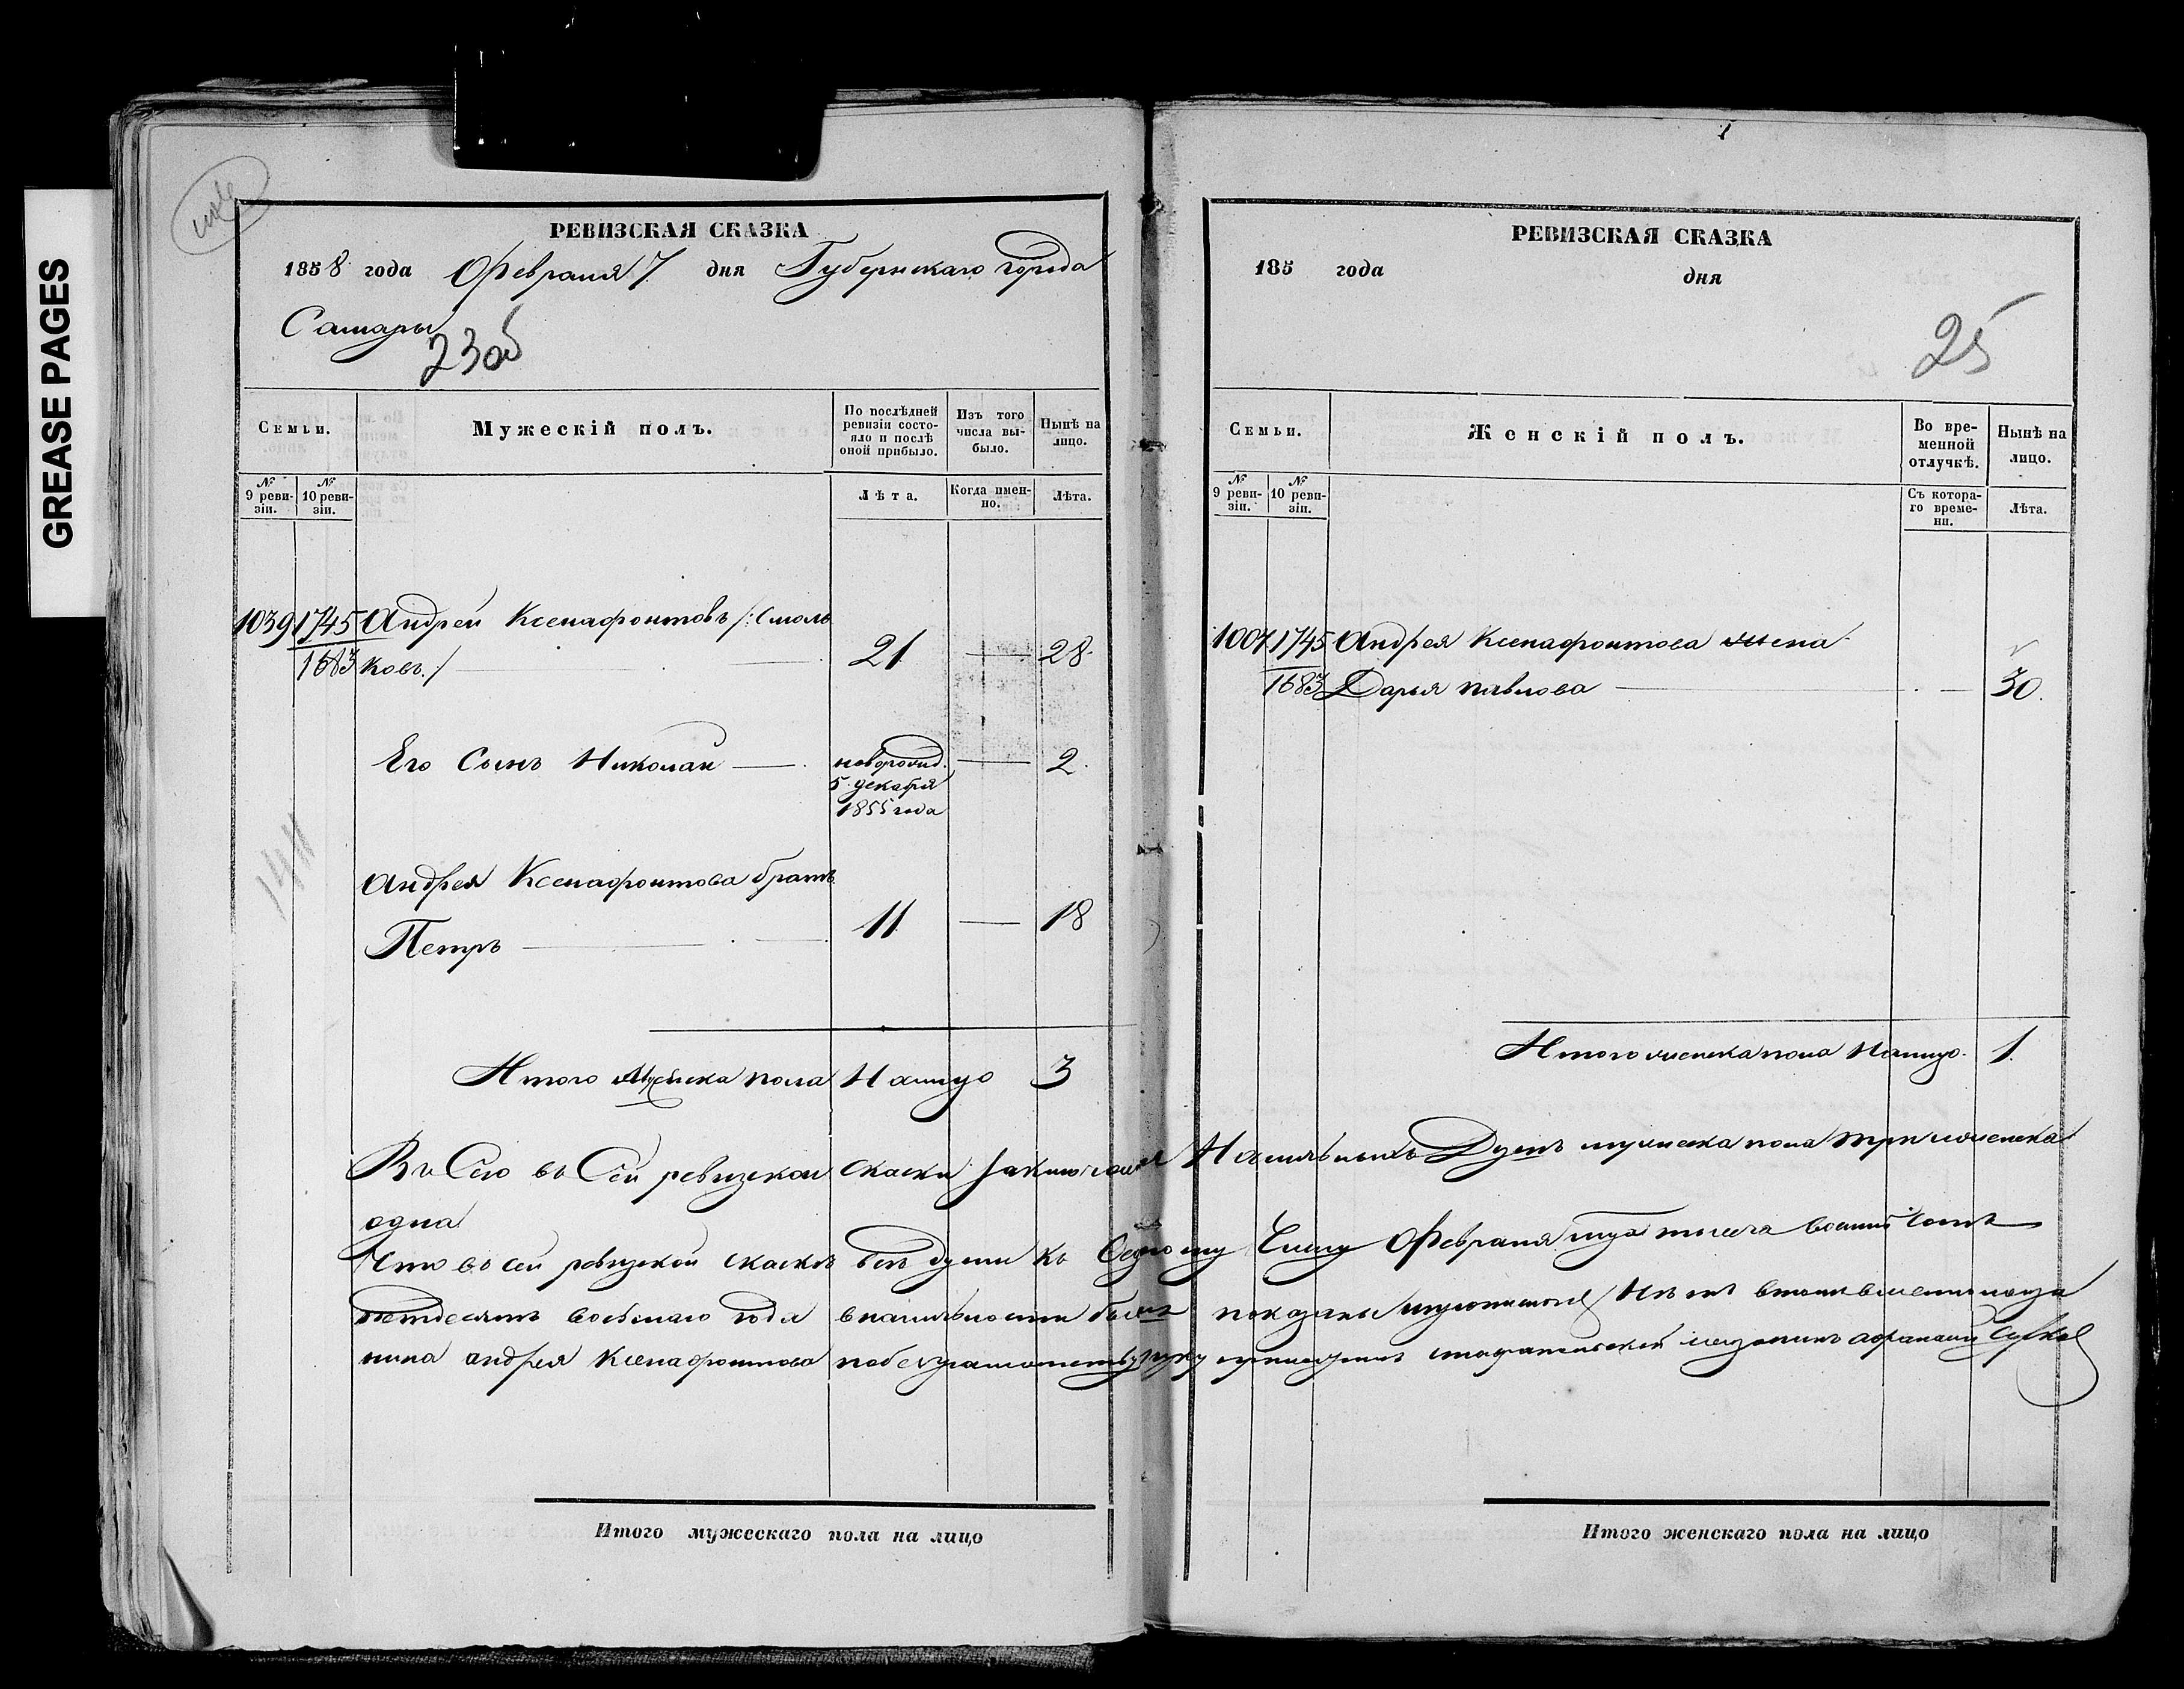 GREASE PAGES
РЕВИЗСКАЯ СКАЗКА
1858 года Февраля 7 дня Губернскаго города
Самары
23об
Семьи.
Мужескій полъ.
По послѣдней ревизіи состо-
яло и послѣ оной прибыло.
Изъ того числа вы-
было.
Нынѣ на лицо.
№ 9 реви-
зіи.
№ 10 реви-
зіи.
Лѣта.
Когда имен-
но.
Лѣта.
1039 1745 Андрей Ксенафонтовъ /: Смоль
1683 ковъ :/ 21 — 28
Его Сынъ Николай — новорожд. — 2
5 декабря
1855 года
Андрея Ксенафонтова братъ
Петръ 11 — 18
Итого Мужеска пола На лицо 3
РЕВИЗСКАЯ СКАЗКА
185 года дня
25
Семьи.
Женскій полъ.
Во вре-
менной
отлучкѣ.
Нынѣ на
лицо.
№ 9 реви-
зіи.
№ 10 реви-
зіи.
Съ котора-
го време-
ни.
Лѣта.
1007 1745 Андрея Ксенафонтова жена
1683 Дарья павлова — 30
Итого женска пола На лицо 1
въ Сей ревизской скаски Наличныхъ Душъ мужеска пола три женска
одна
Что въ сей ревизской скаскѣ всѣ души къ Седмому Числу Февраля тысеча восимь сотъ
петдесятъ восьмаго года вналичности показаны
андрея Ксенафонтова
Итого мужескаго пола на лицо
Итого женскаго пола на лицо